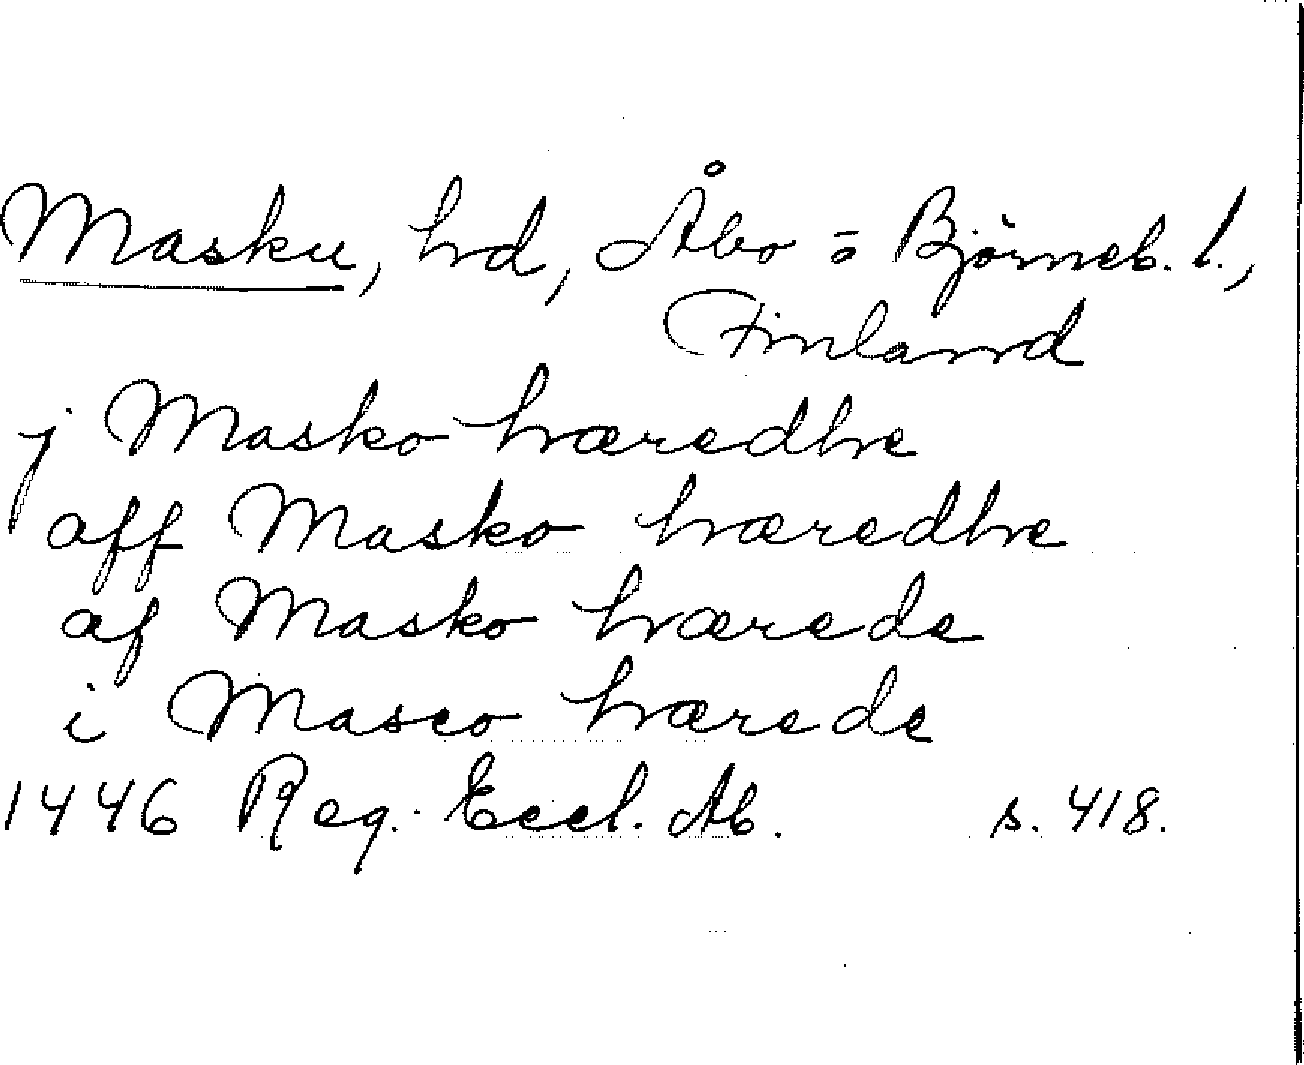 Masku, hd, Åbo = Björneb. l.,
Finland
j Masko hæredhe
aff Masko hæredhe
af Masko hærede
i Masco hærede
1446 Reg. Eccl. Ab. s. 418.